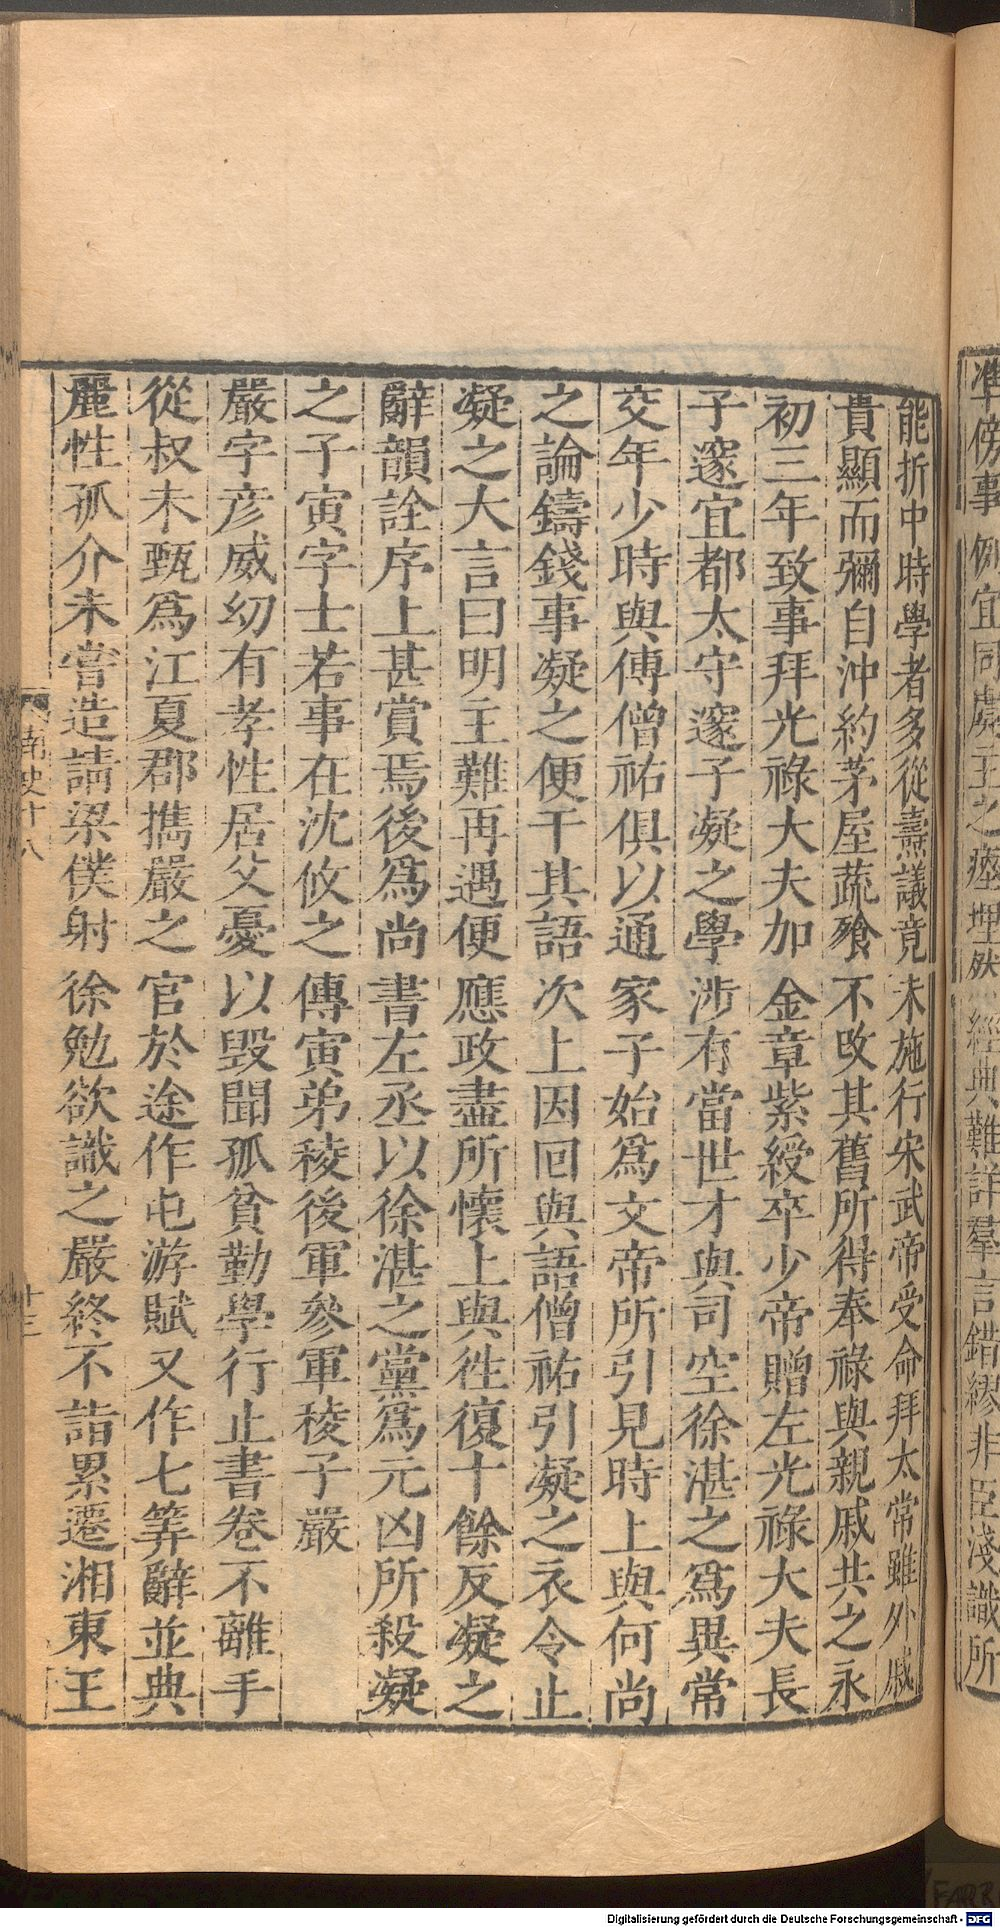 準傍事例宜同虞主之瘞埋然經典難詳羣言錯繆非臣淺識所
能折中時學者多從燾議竟未施行宋武帝受命拜太常雖外戚
貴顯而彌自沖約茅屋蔬飱不改其舊所得奉祿與親戚共之永
初三年致事拜光祿大夫加金章紫綬卒少帝贈左光祿大夫長
子邃宜都太守邃子凝之學涉有當世才與司空徐湛之爲異常
交年少時與傅僧祐俱以通家子始爲文帝所引見時上與何尚
之論鑄錢事凝之便干其語次上因回與語僧祐引凝之衣令止
凝之大言曰明主難再遇便應政盡所懷上與徃復十餘反凝之
辭韻詮序上甚賞焉後爲尚書左丞以徐湛之黨爲元凶所殺凝
之子寅字士若事在沈攸之傳寅弟稜後軍參軍稜子嚴
嚴字彦威幼有孝性居父憂以毀聞孤貧勤學行止書卷不離手
從叔未甄爲江夏郡攜嚴之官於途作屯游賦又作七筭辭並典
麗性孤介未嘗造請梁僕射徐勉欲識之嚴終不詣累遷湘東王
南史十八
十三
Digitalisierung gefördert durch die Deutsche Forschungsgemeinschaft - DFG